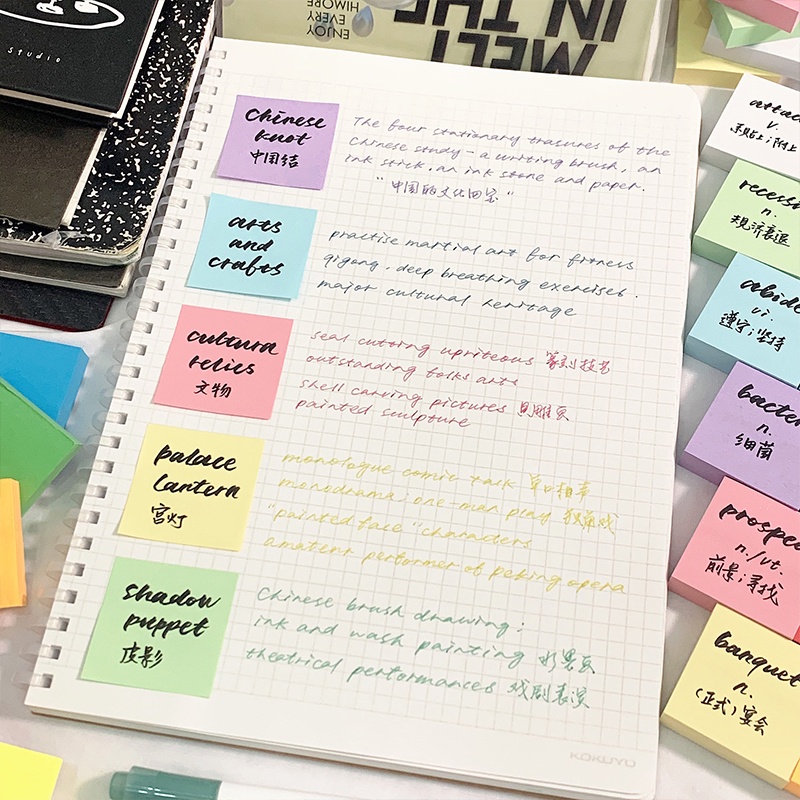 studio
ENJOY
EVERY
HIMORE
MELT
IN THE
Chinese
knot
中国结
The four stationary trasures of the
Chinese study - a writing brush, an
ink stick, an ink stone and paper.
"中国的文化四宝"
arts
and
crafts
practise martial art for fitness
qigong, deep breathing exercises.
major cultural heritage
cultural
relics
文物
seal cutting upriteous 篆刻技艺
outstanding folks arts
shell carving pictures 贝雕画
painted sculpture
palace
lantern
宫灯
monologue comic talk 单口相声
monodrama: one-man play 独角戏
"painted face" characters
amateut performer of peking opera
shadow
puppet
皮影
Chinese brush drawing:
ink and wash painting 水墨画
theatrical performances 戏剧表演
KOKUYO
attac
v.
系贴上;附上
recess
n.
衰退
abide
vi.
遵守;坚持
bacter
n.
细菌
prospec
n./vt.
前景;寻找
banquet
n.
(正式)宴会